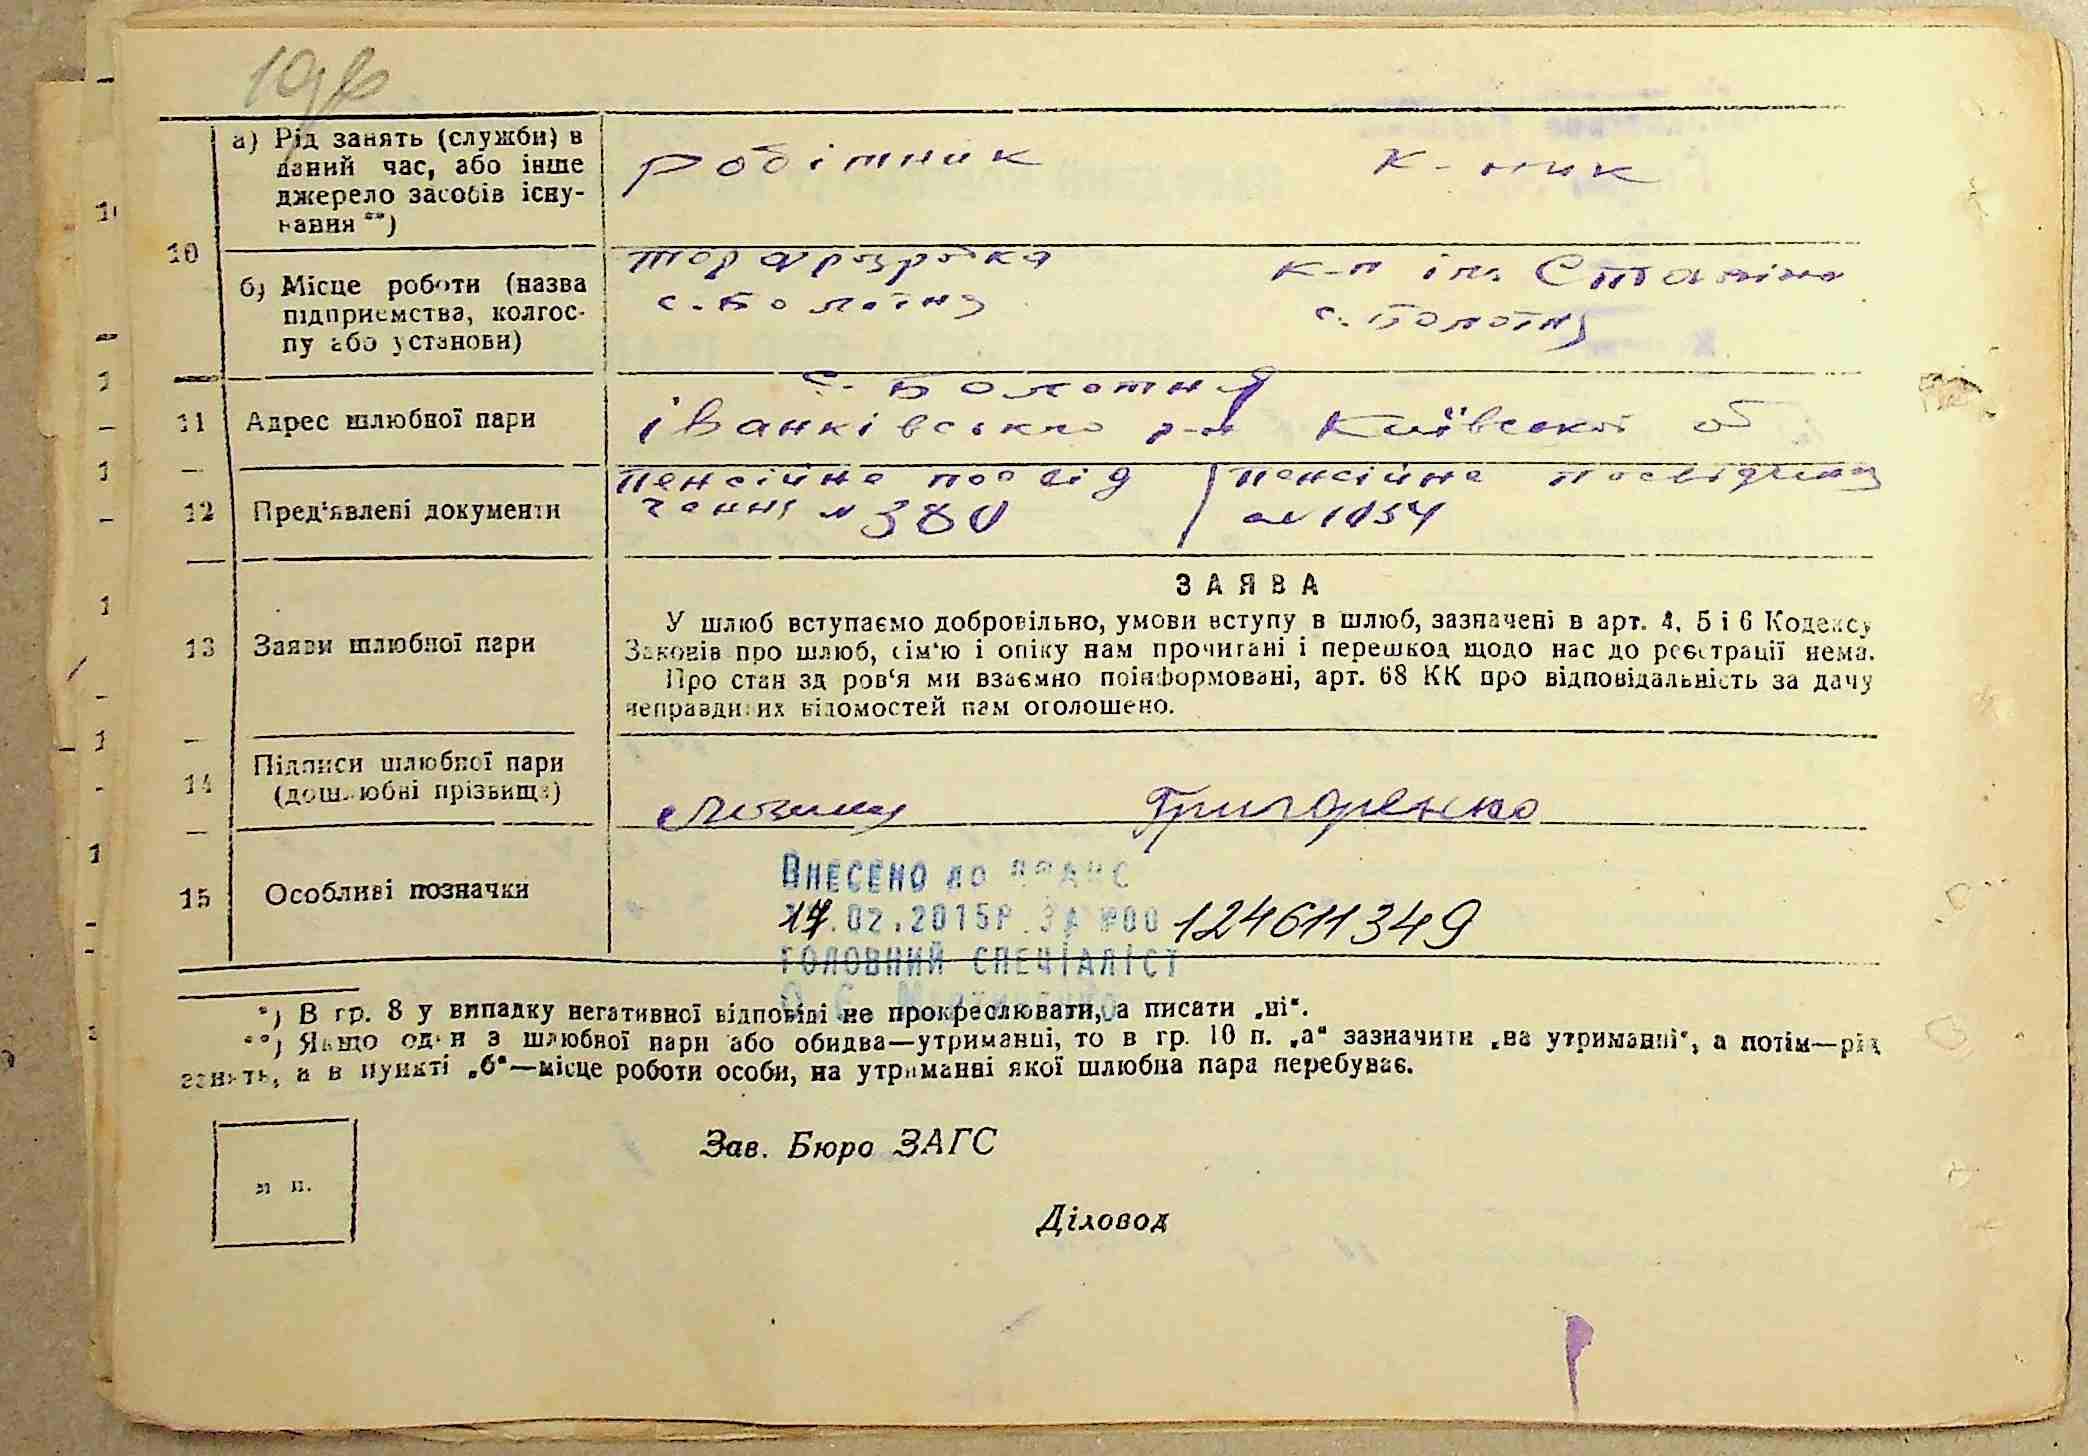 10
а) Рід занять (служби) в
даний час, або інше
джерело засобів існу-
вання **)
робітник
к-ник
б) Місце роботи (назва
підприємства, колгос-
пу або установи)
торфрозробка
с. Болотня
к-п ім Сталіна
с. Болотня
11
Адрес шлюбної пари
с. Болотня
Іванківського р-н Київської об
12
Пред'явлені документи
пенсійне посвід
чення № 380
пенсійне посвідчення
№ 1054
13
Заяви шлюбної пари
ЗАЯВА
У шлюб вступаємо добровільно, умови вступу в шлюб, зазначені в арт. 4, 5 і 6 Кодексу
Законів про шлюб, сім'ю і опіку нам прочитані і перешкод щодо нас до реєстрації нема.
Про стан здоров'я ми взаємно поінформовані, арт. 68 КК про відповідальність за дачу
неправдивих відомостей нам оголошено.
14
Підписи шлюбної пари
(дошлюбні прізвища)
Григоренко
15
Особливі позначки
ВНЕСЕНО ДО ДРАЦС
17.02.2015Р. ЗА №00 124611349
ГОЛОВНИЙ СПЕЦІАЛІСТ
*) В гр. 8 у випадку негативної відповіді не прокреслювати, а писати „ні“.
**) Якщо один з шлюбної пари або обидва—утриманці, то в гр. 10 п. „а“ зазначити „на утриманні“, а потім—рід
занять, а в пункті „б“—місце роботи особи, на утриманні якої шлюбна пара перебуває.
м п.
Зав. Бюро ЗАГС
Діловод